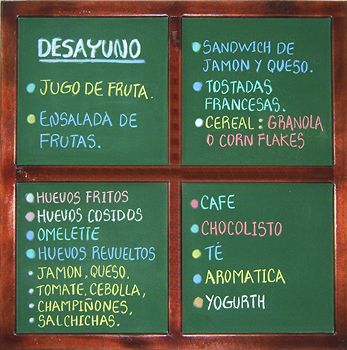 DESAYUNO
JUGO DE FRUTA.
ENSALADA DE
FRUTAS.
SANDWICH DE
JAMON Y QUESO.
TOSTADAS
FRANCESAS.
CEREAL : GRANOLA
O CORN FLAKES
HUEVOS FRITOS
HUEVOS COSIDOS
OMELETTE
HUEVOS REVUELTOS
JAMON, QUESO,
TOMATE, CEBOLLA,
CHAMPIÑONES,
SALCHICHAS.
CAFE
CHOCOLISTO
TÉ
AROMATICA
YOGURTH